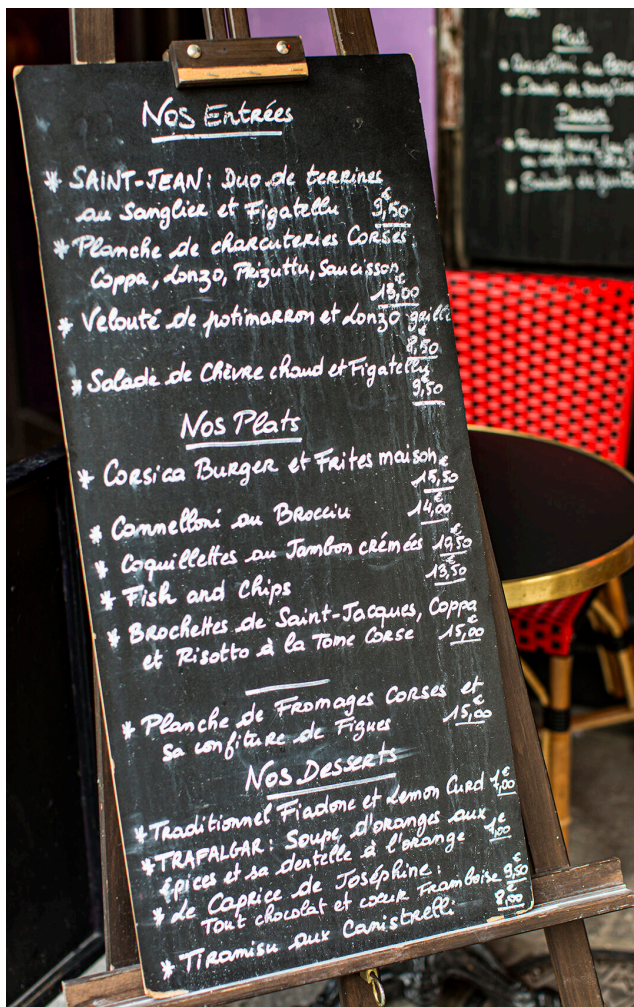 Nos Entrées
* SAINT-JEAN: Duo de terrines
au Sanglier et Figatellu 9,50€
* Planche de charcuteries Corses
Coppa, Lonzo, Prizuttu, Saucisson
13,00€
* Velouté de potimarron et Lonzo grillé
8,50€
* Salade de Chèvre chaud et Figatelly
9,50€
Nos Plats
* Corsica Burger et Frites maison
15,50€
* Cannelloni au Brocciu 14,00€
* Coquillettes au Jambon crémées 10,50€
* Fish and Chips 13,50€
* Brochettes de Saint-Jacques, Coppa
et Risotto à la Tome Corse 15,00
* Planche de Fromages Corses et
sa confiture de Figues 15,00€
Nos Desserts
* Traditionnel Fiadone et Lemon Curd ,00€
* TRAFALGAR: Soupe d'oranges aux
épices et sa dentelle à l'orange ,00€
* Le Caprice de Joséphine:
Tout chocolat et cœur Framboise 9,50€
* Tiramisu aux Canistrelli 8,00€
Plat
Dessert